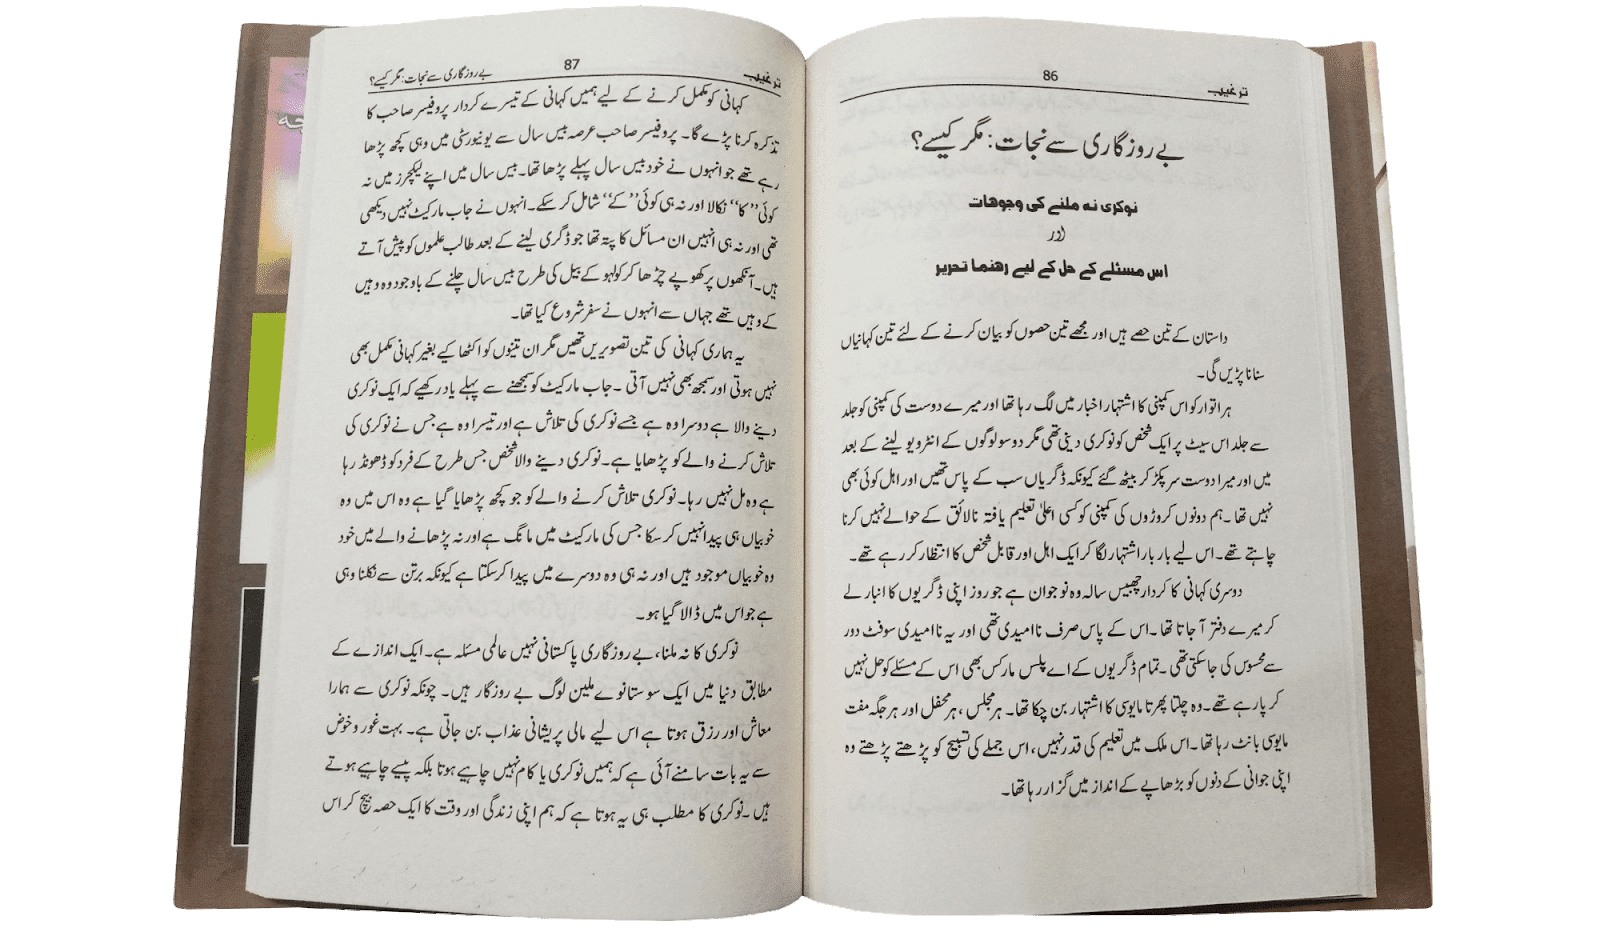 86
ترغیب
بے روزگاری سے نجات: مگر کیسے؟
نوکری نہ ملنے کی وجوہات
اور
اس مسئلے کے حل کے لیے رہنما تحریر
داستان کے تین حصے ہیں اور مجھے تین حصوں کو بیان کرنے کے لئے تین کہانیاں
سنانا پڑیں گی۔
ہر اتوار کو اس کمپنی کا اشتہار اخبار میں لگ رہا تھا اور میرے دوست کی کمپنی کو جلد
سے جلد اس سیٹ پر ایک شخص کو نوکری دینی تھی مگر دو سو لوگوں کے انٹرویو لینے کے بعد
میں اور میرا دوست سر پکڑ کر بیٹھ گئے کیونکہ ڈگریاں سب کے پاس تھیں اور اہل کوئی بھی
نہیں تھا۔ ہم دونوں کروڑوں کی کمپنی کو کسی اعلیٰ تعلیم یافتہ نالائق کے حوالے نہیں کرنا
چاہتے تھے۔ اس لیے بار بار اشتہار لگا کر ایک اہل اور قابل شخص کا انتظار کر رہے تھے۔
دوسری کہانی کا کردار چھبیس سالہ وہ نوجوان ہے جو روز اپنی ڈگریوں کا انبار لے
کر میرے دفتر آ جاتا تھا۔ اس کے پاس صرف ناامیدی تھی اور یہ ناامیدی سو فٹ دور
سے محسوس کی جا سکتی تھی۔ تمام ڈگریوں کے اے پلس مارکس بھی اس کے مسئلے کو حل نہیں
کر پا رہے تھے۔ وہ چلتا پھرتا مایوسی کا اشتہار بن چکا تھا۔ ہر مجلس، ہر محفل اور ہر جگہ مفت
مایوسی بانٹ رہا تھا۔ اس ملک میں تعلیم کی قدر نہیں، اس جملے کی تسبیح کو پڑھتے پڑھتے وہ
اپنی جوانی کے دنوں کو بڑھاپے کے انداز میں گزار رہا تھا۔
ترغیب
87
بے روزگاری سے نجات: مگر کیسے؟
کہانی کو مکمل کرنے کے لیے ہمیں کہانی کے تیسرے کردار پروفیسر صاحب کا
تذکرہ کرنا پڑے گا۔ پروفیسر صاحب عرصہ بیس سال سے یونیورسٹی میں وہی کچھ پڑھا
رہے تھے جو انہوں نے خود بیس سال پہلے پڑھا تھا۔ بیس سال میں اپنے لیکچرز میں نہ
کوئی ’’کا‘‘ نکالا اور نہ ہی کوئی ’’کے‘‘ شامل کر سکے۔ انہوں نے جاب مارکیٹ نہیں دیکھی
تھی اور نہ ہی انہیں ان مسائل کا پتہ تھا جو ڈگری لینے کے بعد طالب علموں کو پیش آتے
ہیں۔ آنکھوں پر کھوپے چڑھا کر کولہو کے بیل کی طرح بیس سال چلنے کے باوجود وہ وہیں
کے وہیں تھے جہاں سے انہوں نے سفر شروع کیا تھا۔
یہ ہماری کہانی کی تین تصویریں تھیں مگر ان تینوں کو اکٹھا کیے بغیر کہانی مکمل بھی
نہیں ہوتی اور سمجھ بھی نہیں آتی۔ جاب مارکیٹ کو سمجھنے سے پہلے یاد رکھیے کہ ایک نوکری
دینے والا ہے دوسرا وہ ہے جسے نوکری کی تلاش ہے اور تیسرا وہ ہے جس نے نوکری کی
تلاش کرنے والے کو پڑھایا ہے۔ نوکری دینے والا شخص جس طرح کے فرد کو ڈھونڈ رہا
ہے وہ مل نہیں رہا۔ نوکری تلاش کرنے والے کو جو کچھ پڑھایا گیا ہے وہ اس میں وہ
خوبیاں ہی پیدا نہیں کر سکا جس کی مارکیٹ میں مانگ ہے اور نہ پڑھانے والے میں خود
وہ خوبیاں موجود ہیں اور نہ ہی وہ دوسرے میں پیدا کر سکتا ہے کیونکہ برتن سے نکلنا وہی
ہے جو اس میں ڈالا گیا ہو۔
نوکری کا نہ ملنا، بے روزگاری پاکستانی نہیں عالمی مسئلہ ہے۔ ایک اندازے کے
مطابق دنیا میں ایک سو ستانوے ملین لوگ بے روزگار ہیں۔ چونکہ نوکری سے ہمارا
معاش اور رزق ہوتا ہے اس لیے مالی پریشانی عذاب بن جاتی ہے۔ بہت غور و خوض
سے یہ بات سامنے آئی ہے کہ ہمیں نوکری یا کام نہیں چاہیے ہوتا بلکہ پیسے چاہیے ہوتے
ہیں۔ نوکری کا مطلب ہی یہ ہوتا ہے کہ ہم اپنی زندگی اور وقت کا ایک حصہ بیچ کر اس